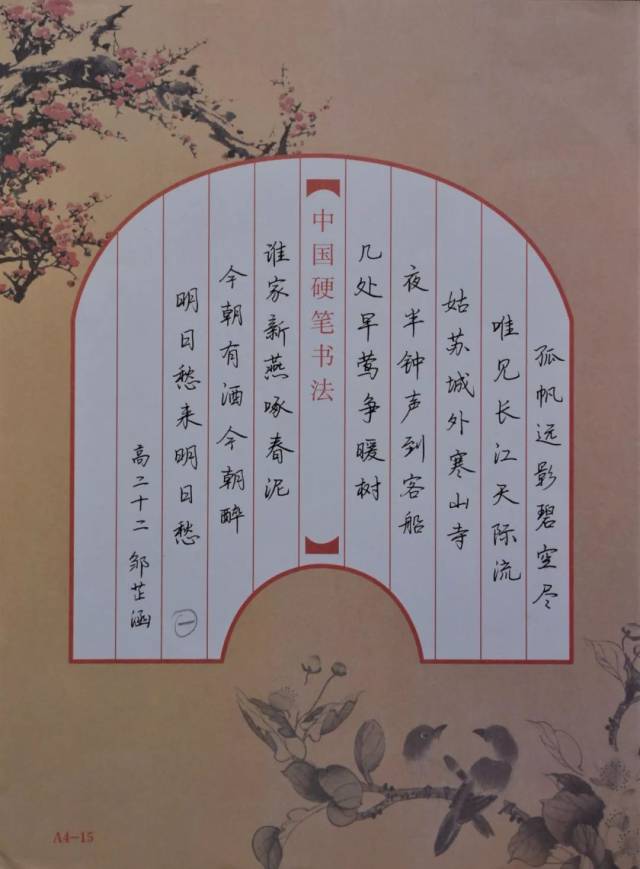 孤帆远影碧空尽
唯见长江天际流
姑苏城外寒山寺
夜半钟声到客船
几处早莺争暖树
【中国硬笔书法】
谁家新燕啄春泥
今朝有酒今朝醉
明日愁来明日愁
一
高二十二 邹芷涵
A4-15